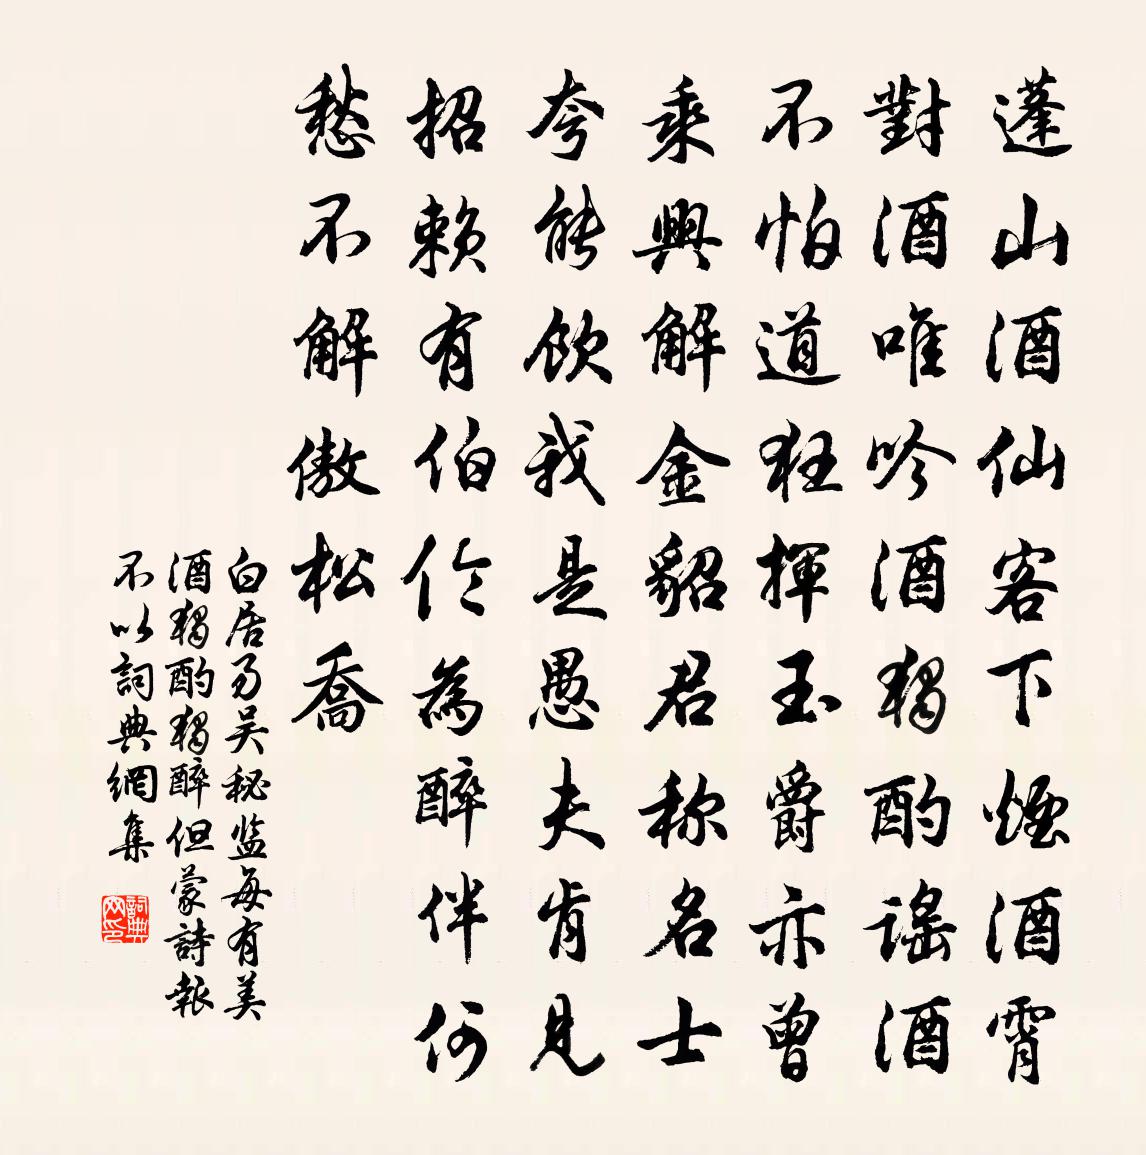 蓬山酒仙客下煙酒霄
對酒唯吟酒獨酌謠酒
不怕道狂揮玉爵亦曾
乘興解金貂君称名士
夸能飲我是愚夫肯見
招賴有伯伶為醉伴何
愁不解傲松喬
白居易吴秘监每有美
酒獨酌獨醉但蒙詩報
不以詞典網集
詞典网印